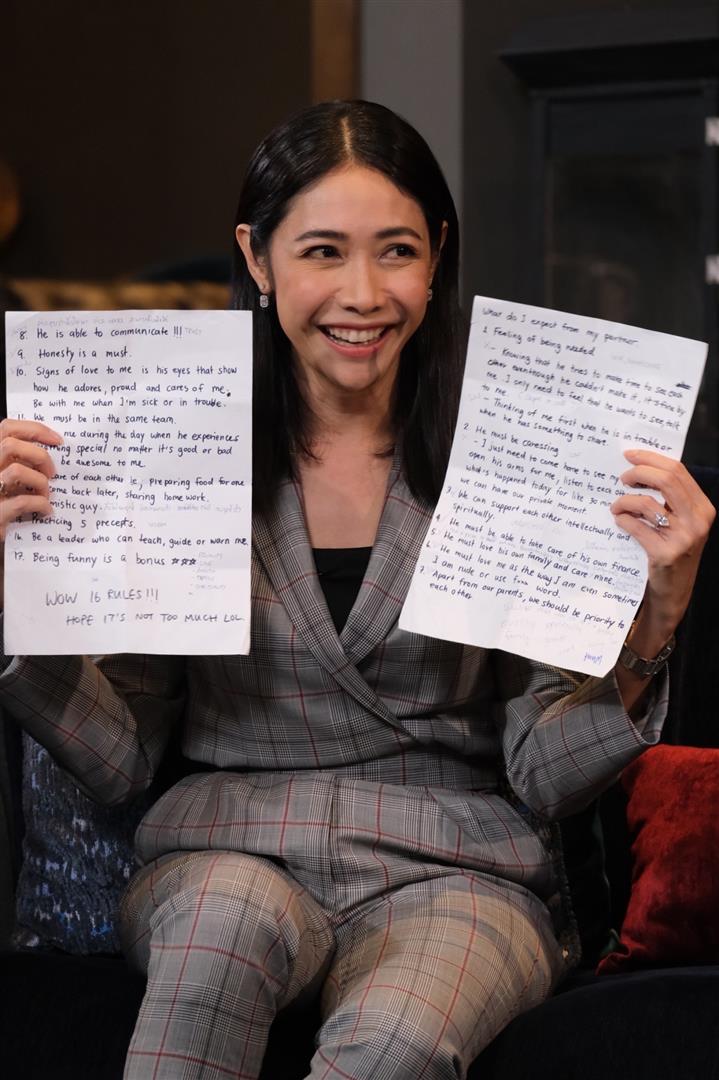 What do I expect from my partner
1. Feeling of being needed
- Knowing that he tries to make time to see each
other eventhough he couldn't make it, it's fine by
me. I only need to feel that he wants to see, talk
to me.
- Thinking of me first when he is in trouble or
when he has something to share.
2. He must be caressing
- I just need to come home to see my
open his arms for me, listen to each othe
what is happened today for like 30 min
we can have our private moment.
3. We can support each other intellectually and
spiritually.
4. He must be able to take care of his own finance
5. He must love his own family and care mine.
6. He must love me as the way I am even sometimes
I am rude or use word.
7. Apart from our parents, we should be priority to
each other
8. He is able to communicate !!!
9. Honesty is a must.
10. Signs of love to me is his eyes that show
how he adores, proud and cares of me.
Be with me when I'm sick or in trouble.
11. We must be in the same team.
me during the day when he experiences
special no matter it's good or bad
be awesome to me.
are of each other ie, preparing food for one
ome back later, sharing home work.
mistic guy.
15. Practicing 5 precepts.
16. Be a leader who can teach, guide or warn me.
17. Being funny is a bonus ☆☆☆
WOW 16 RULES!!!
HOPE IT'S NOT TOO MUCH LOL.